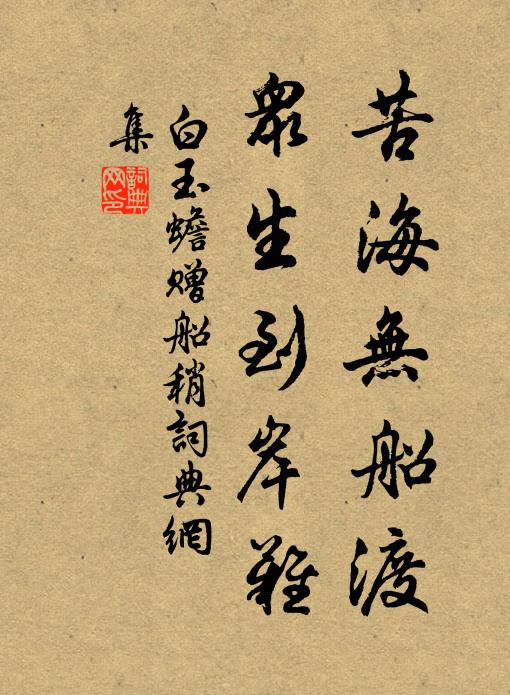 苦海無船渡
眾生到岸難
白玉蟾贈船稍詞典網
集
詞典网印